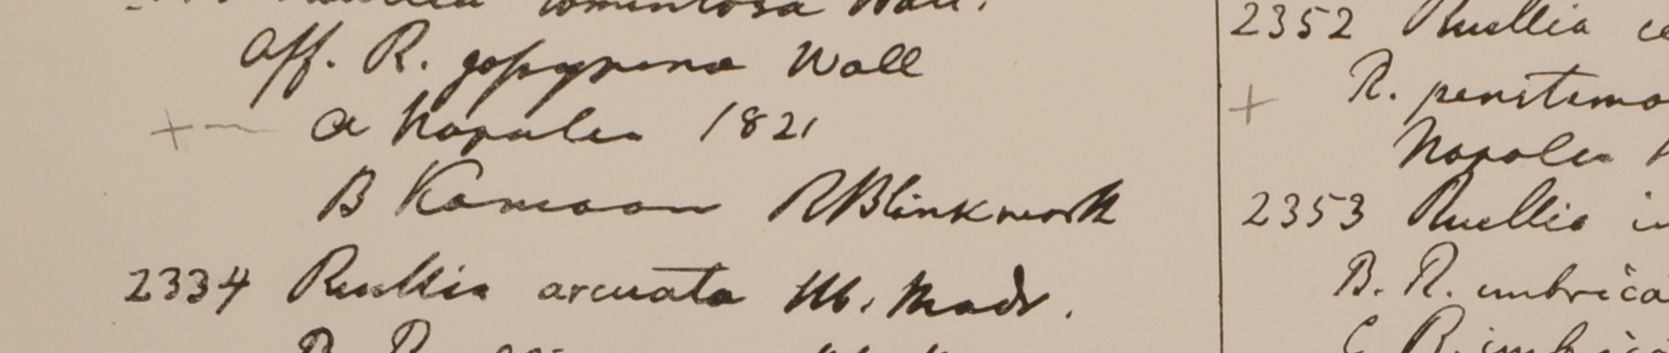 tomentosa Wall.
Aff. R. gossypina Wall
a Napalia 1821
B Kamaon RBlinkwork
2334 Ruellia arcuata Hb. Madr.
2352 Ruellia
R. penstemo
Napalia
2353 Ruellia
B. R. imbrica